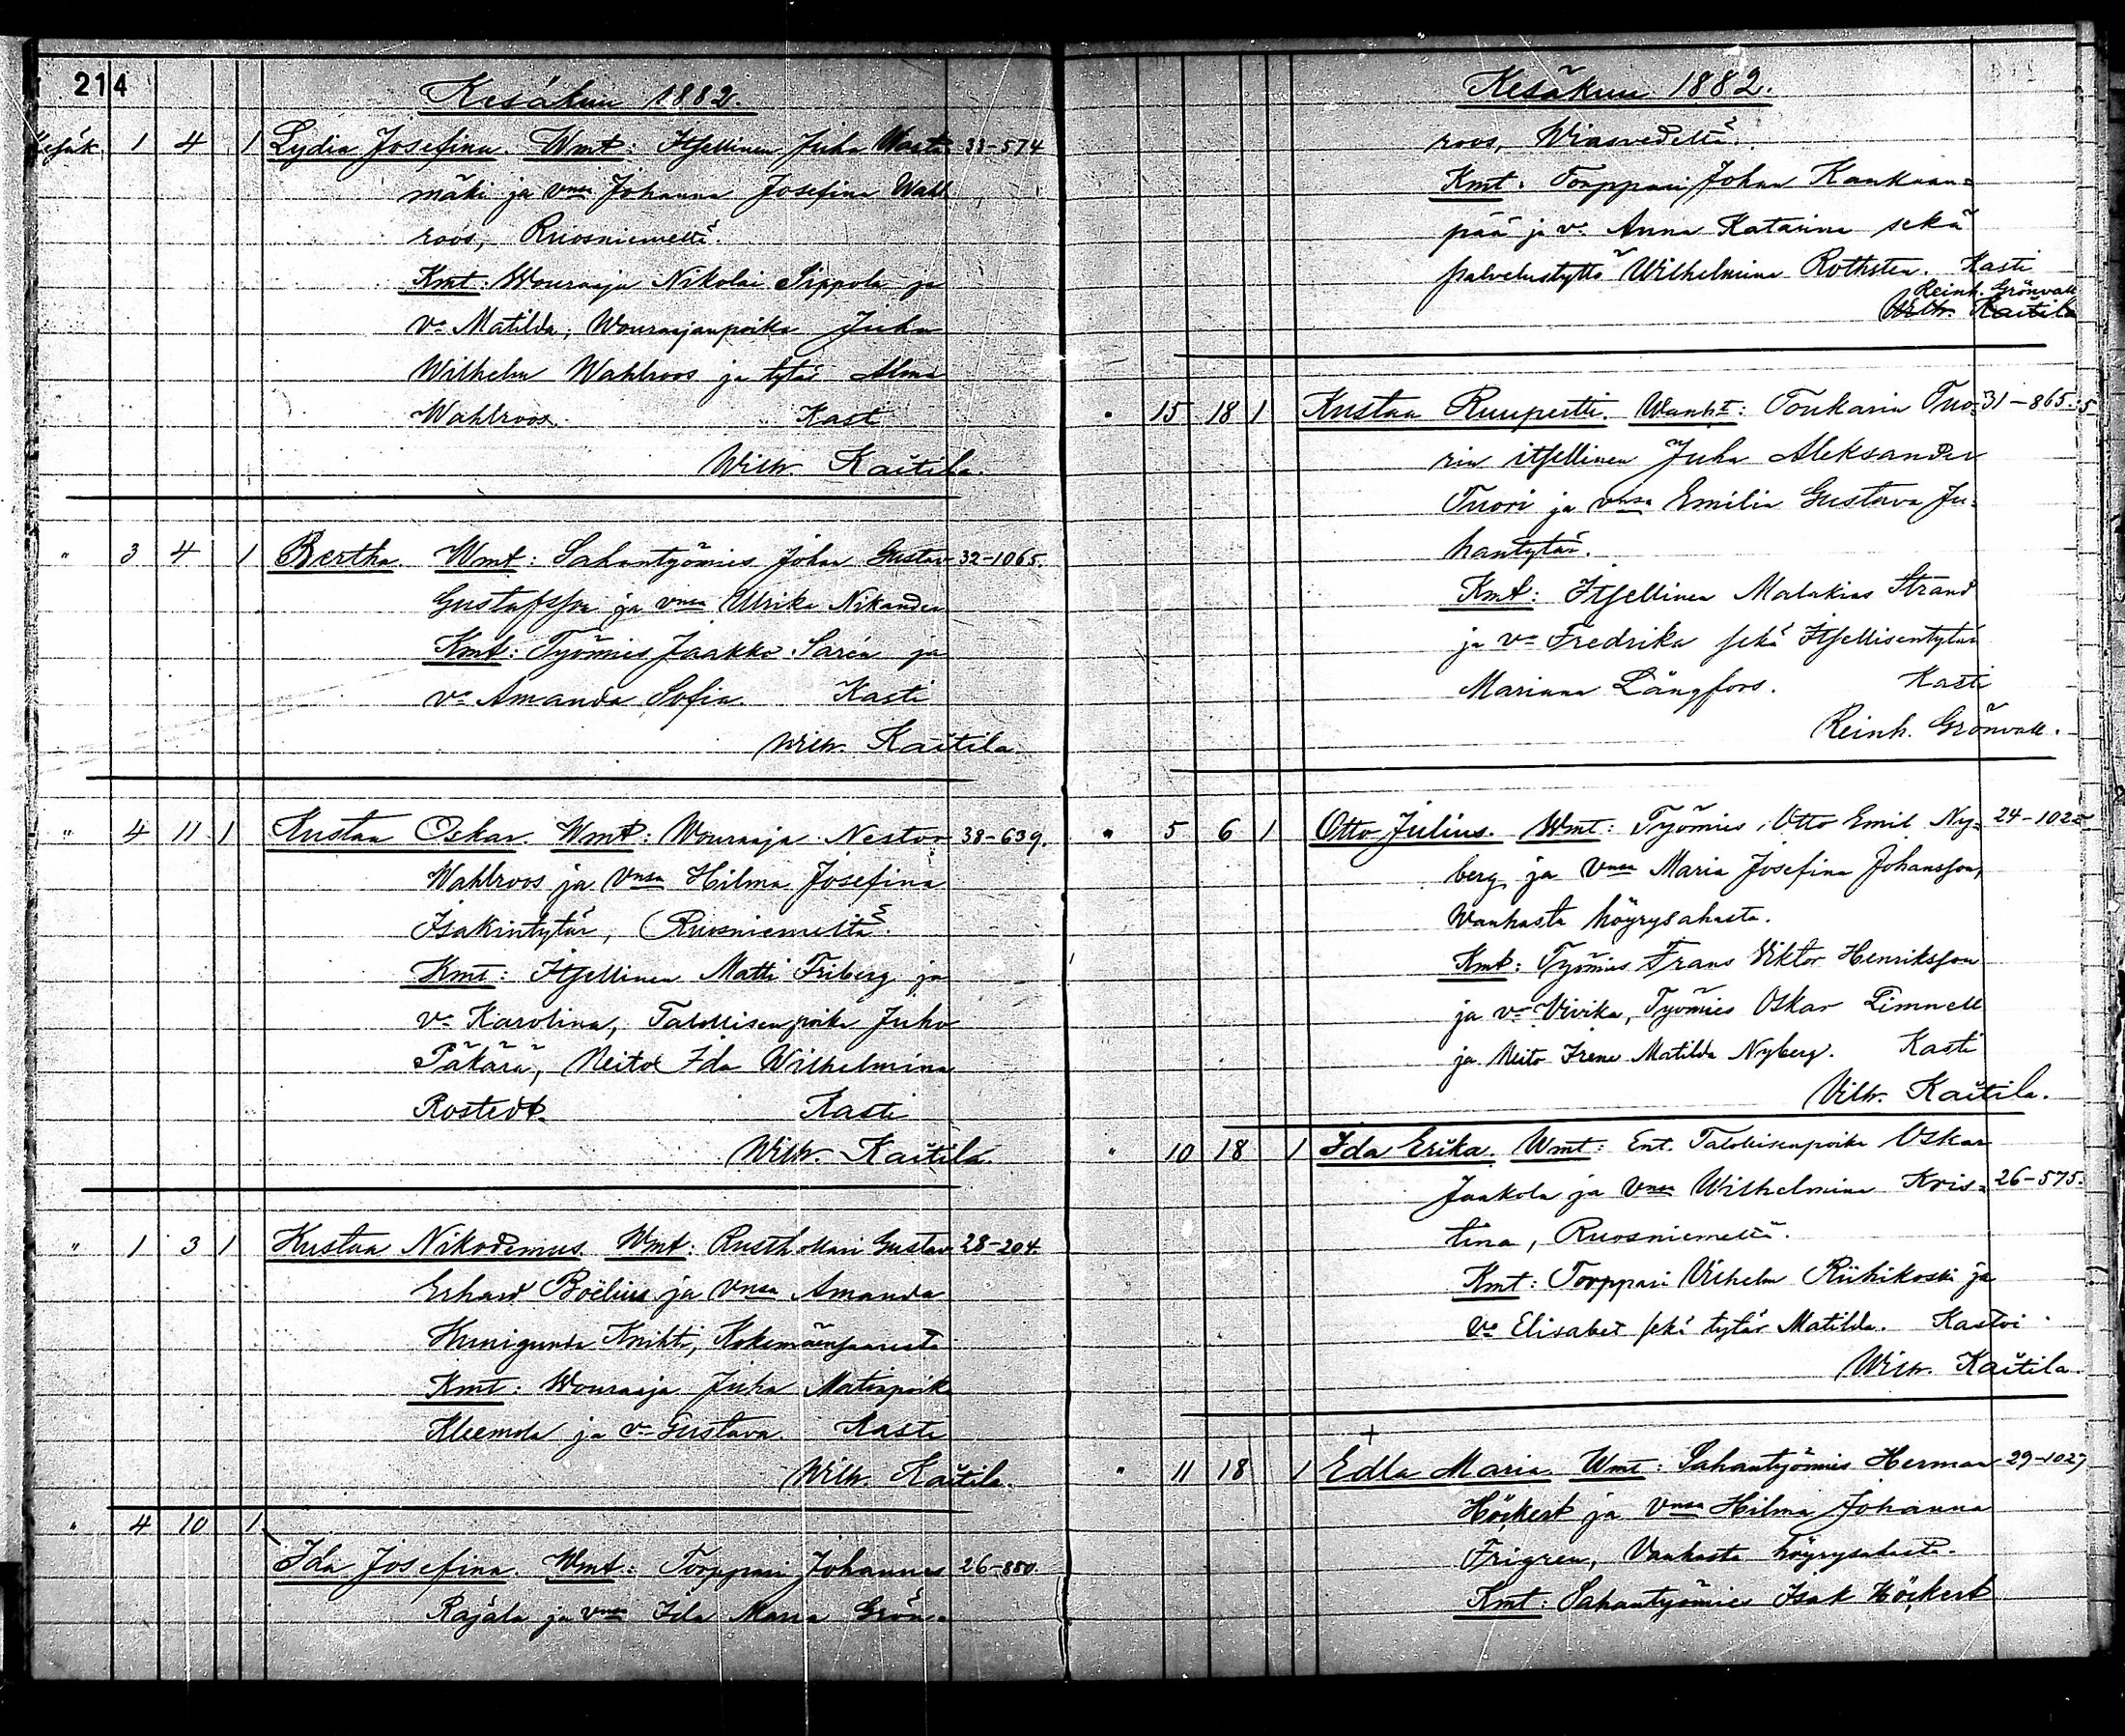 214
Kesäkuu 1882.
Kesäk. 1 4 1 Lydia Josefina. Wmt: Itsellinen Juha Wasta- 33-574
mäki ja vmsa Johanna Josefina Wahl
roos, Ruosniemeltä.
Kmt: Wouraaja Nikolai Sippola ja
va Matilda, Wouraajanpoika Juha
Wilhelm Wahlroos ja tytär Alma
Wahlroos. Kast
Wilh. Kaitila.
" 3 4 1 Bertha Wmt: Sahantyömies Johan Gustav 32-1065.
Gustafsson ja vmsa Ulrika Nikander
Kmt: Työmies Jaakko Sarén ja
va Amanda Sofia. Kasti
Wilh. Kaitila.
" 4 11 1 Kustaa Oskar. Wmt: Wouraaja Nestor 38-639.
Wahlroos ja vmsa Hilma Josefina
Isakintytär, Ruosniemeltä.
Kmt: Itsellinen Matti Friberg ja
va Karolina, Talollisenpoika Juho
Päkärä, Neito Ida Wilhelmina
Rostedt. Kasti
Wilh. Kaitila.
" 1 3 1 Kustaa Nikodemus. Wmt: Rusthollari Gustav 28-204.
Erhard Boëlius ja vmsa Amanda
Kunigunda Knihti, Kokemäensaaresta
Kmt: Wouraaja Juha Matinpoika
Kleemola ja va Gustava. Kasti
Wilh. Kaitila.
" 4 10 1
Ida Josefina. Wmt: Torppari Johannes 26-880.
Rajala ja vmsa Ida Maria Grön-
Kesäkuu 1882.
roos, Wiasvedeltä.
Kmt. Torppari Johan Kankaan=
pää ja va Anna Katarina sekä
palvelustyttö Wilhelmina Rothsten. Kasti
Reinh. Grönvall
Wilh. Kaitila
" 15 18 1 Kustaa Ruupertti. Wanht: Toukarin Tuo- 31-865.
rin itsellinen Juha Aleksander
Tuori ja vmsa Emilia Gustava Ju-
hantytär.
Kmt: Itsellinen Malakias Strand
ja va Fredrika sekä Itsellisentytär
Marianna Långfors. Kasti
Reinh. Grönvall.
" 5 6 1 Otto Julius. Wmt: Työmies Otto Emil Ny= 24-102
berg ja vmsa Maria Josefina Johansson,
Wanhasta höyrysahasta.
Kmt: Työmies Frans Viktor Henriksson
ja va Vivika, Työmies Oskar Limnell
ja Neito Irene Matilda Nyberg. Kasti
Vilh. Kaitila.
" 10 18 1 Ida Erika. Wmt: Ent. Talollisenpoika Oskar
Jaakola ja vmsa Wilhelmina Kris= 26-575.
tina, Ruosniemeltä.
Kmt: Torppari Vilhelm Riihikoski ja
va Elisabet sekä tytär Matilda. Kastoi
Wilh. Kaitila.
" 11 18 1 Edla Maria. Wmt: Sahantyömies Herman 29-1027
Höckert ja vmsa Hilma Johanna
Frigren, Vanhasta höyrysahasta.
Kmt: Sahantyömies Isak Höckert